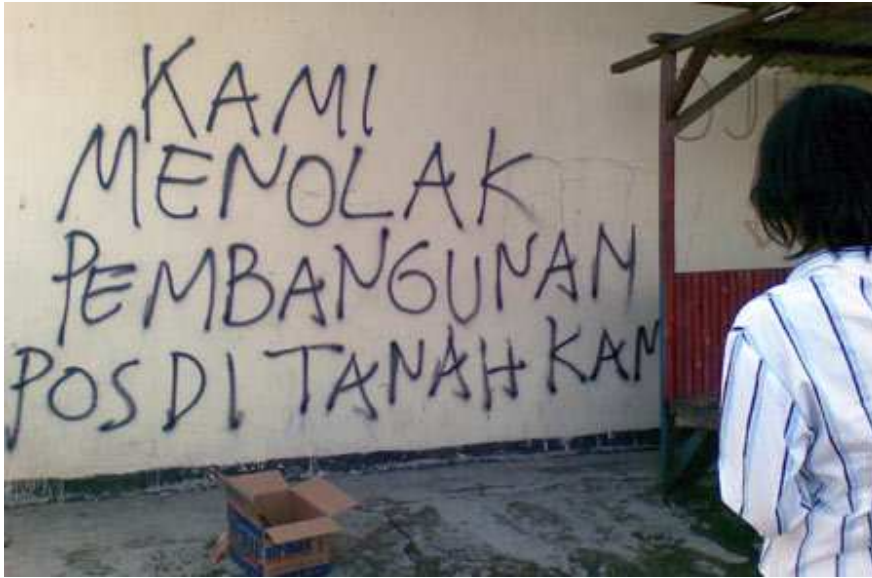 KAMI
MENOLAK
PEMBANGUNAN
POS DI TANAH KAM